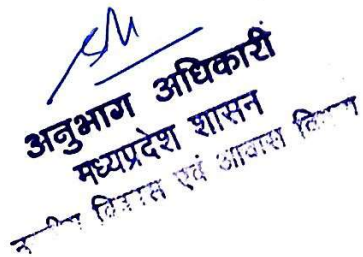 अनुभाग अधिकारी
मध्यप्रदेश शासन
विकास एवं आवास विभाग